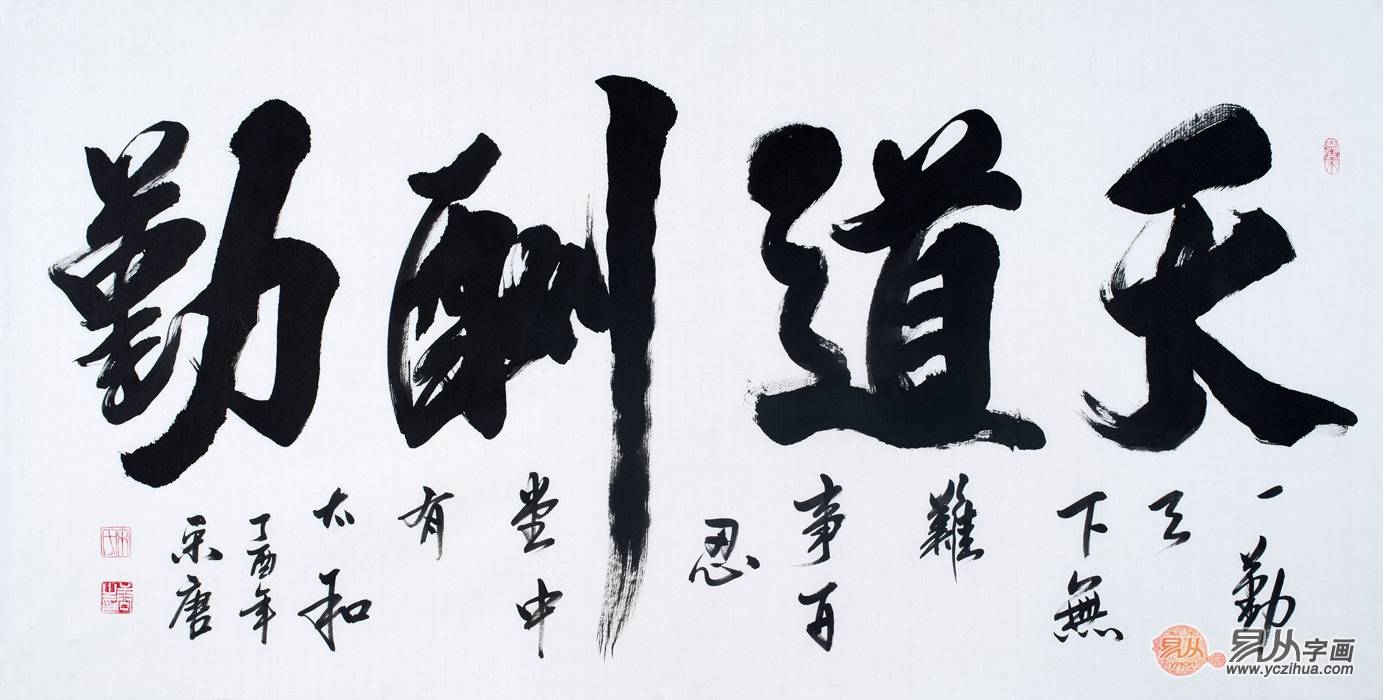 天道酬勤
一勤
天
下無
難
事百
忍
堂中
有
太和
丁酉年
宋唐
易从
易从字画
www.yczihua.com